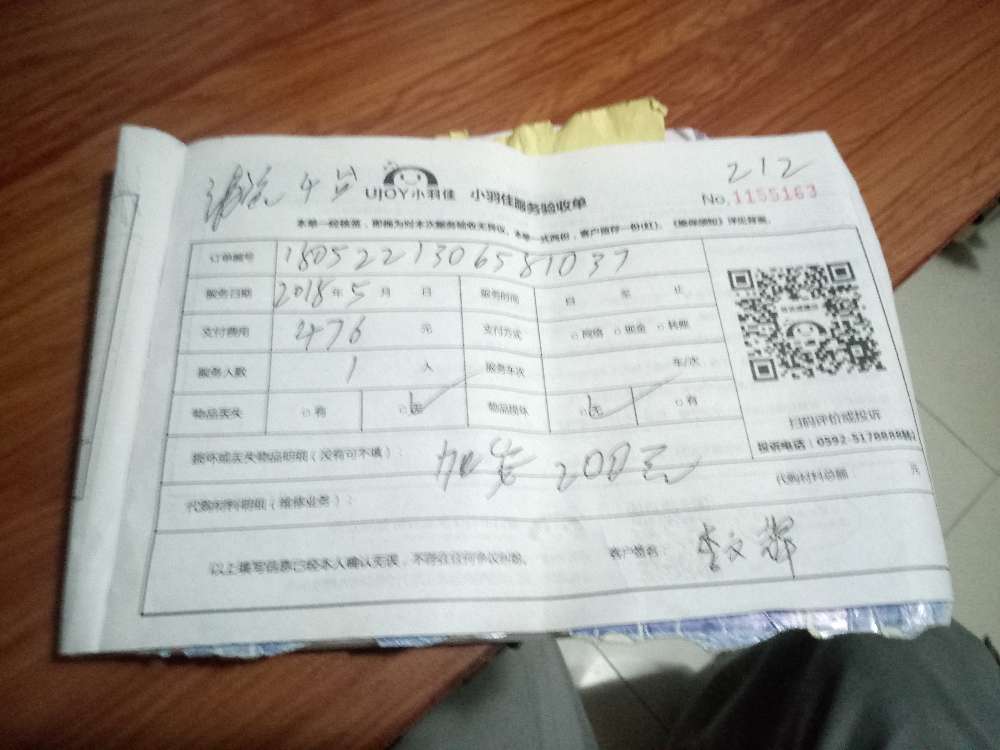 212
UJOY小羽佳 小羽佳服务验收单 No.1155163
本单一经核签,即视为对本次服务验收无异议。本单一式两份,客户留存一份(红)。
订单编号 1805221306581037
服务日期 2018年5月 日 服务时间 自 至 止
支付费用 476 元 支付方式 □网络 □现金 □转账
服务人数 1 人 服务车次 车/次
物品丢失 □有 □无 物品损坏 □无 □有
扫码评价或投诉
投诉电话:0592-5178888转2
损坏或丢失物品明细(没有可不填):
200元
代购材料明细(维修业务): 代购材料总额 元
以上填写信息已经本人确认无误,不存在任何争议纠纷。 客户签名: 李文辉